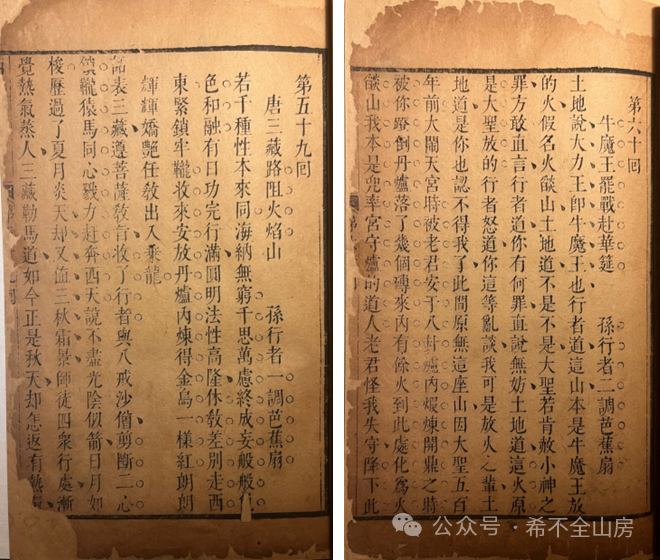 第五十九回
唐三藏路阻火焰山　孫行者一調芭蕉扇
若干種性本來同海納無窮千思萬慮終成妄般般
色和融有日功完行滿圓明法性高隆休敎差別走西
東緊鎖牢籠收來安放丹爐內煉得金烏一樣紅朗朗
輝輝嬌艷任敎出入乗龍
話表三藏遵菩薩敎旨收了行者與八戒沙僧剪斷二心
鎖籠猿馬同心戮力赶奔西天說不盡光陰似箭日月如
梭歷過了夏月炎天却又值三秋霜景師徒四衆行處漸
覺熱氣蒸人三藏勒馬道如今正是秋天却怎返有熱
第六十回
牛魔王罷戰赴華筵　孫行者二調芭蕉扇
土地說大力王即牛魔王也行者道這山本是牛魔王放
的火假名火燄山土地道不是不是大聖若肯赦小神之
罪方敢直言行者道你有何罪直說無妨土地道這火原
是大聖放的行者怒道你這等亂談我可是放火之輩土
地道是你也認不得我了此間原無這座山因大聖五百
年前大鬧天宮時被老君安于八卦爐內煆煉開鼎之時
被你蹬倒丹爐落了幾個磚來內有餘火到此處化爲火
燄山我本是兜率宮守爐的道人老君怪我失守降下此
公众号 · 希不全山房